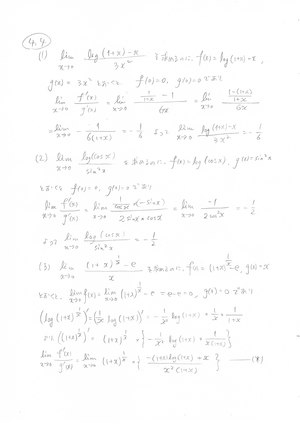 4.4
(1) lim_{x→0} (log(1+x)-x)/(3x²) を求めるために、f(x)=log(1+x)-x,
g(x)=3x² とおくと f(0)=0, g(0)=0 であり
lim_{x→0} f'(x)/g'(x) = lim_{x→0} (1/(1+x) - 1)/(6x) = lim_{x→0} (-x/(1+x))/(6x)
= lim_{x→0} -1/(6(1+x)) = -1/6 よって lim_{x→0} (log(1+x)-x)/(3x²) = -1/6
(2) lim_{x→0} log(cos x)/sin²x を求めるために f(x)=log(cos x), g(x)=sin²x
とおくと f(0)=0, g(0)=0 であり
lim_{x→0} f'(x)/g'(x) = lim_{x→0} (1/cos x × (-sin x))/(2 sin x × cos x) = lim_{x→0} -1/(2cos²x) = -1/2
よって lim_{x→0} log(cos x)/sin²x = -1/2
(3) lim_{x→0} ((1+x)^{1/x} - e)/x を求めるために、f(x)=(1+x)^{1/x}-e, g(x)=x
とおくと、lim_{x→0} f(x) = lim_{x→0} (1+x)^{1/x} - e = e-e=0, g(0)=0 であり
(log(1+x)^{1/x})' = (1/x log(1+x))' = -1/x² log(1+x) + 1/x × 1/(1+x)
((1+x)^{1/x})' = (1+x)^{1/x} × {-1/x² log(1+x) + 1/(x(1+x))}
lim_{x→0} f'(x)/g'(x) = lim_{x→0} (1+x)^{1/x} × {(-(1+x)log(1+x)+x)/(x²(1+x))} ―― (*)